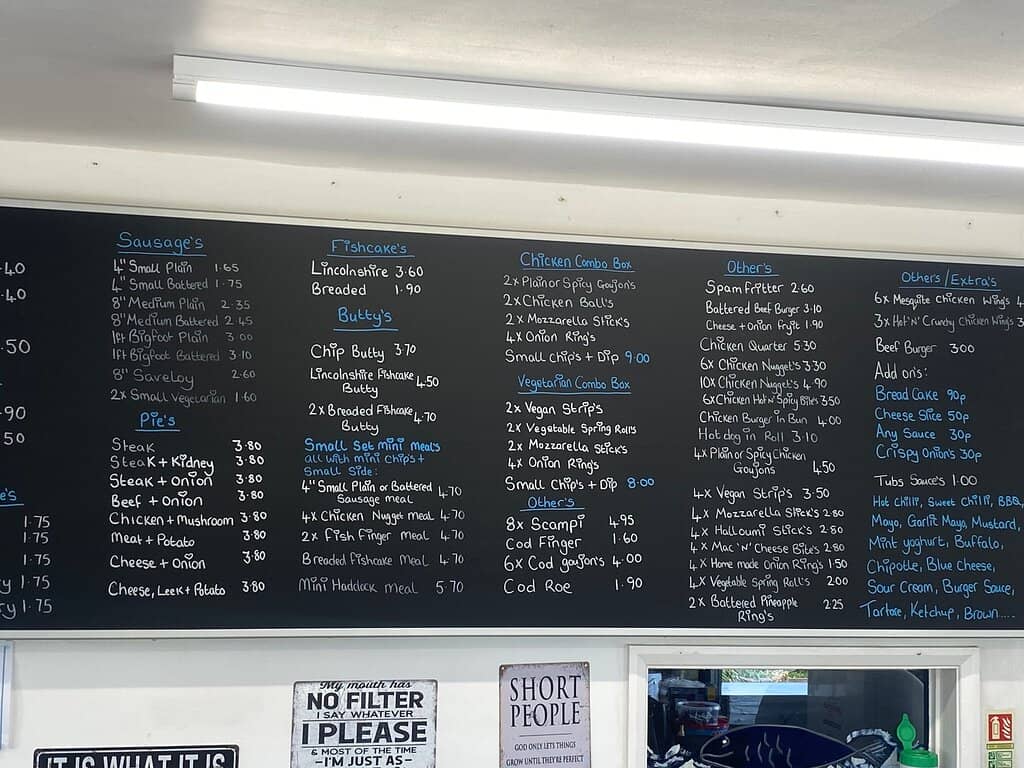 .40
.40
.50
.90
50
e's
1.75
1.75
1.75
y 1.75
ry 1.75
Sausage's
4" Small Plain 1.65
4" Small Battered 1.75
8" Medium Plain 2.35
8" Medium Battered 2.45
1ft Bigfoot Plain 3.00
1ft Bigfoot Battered 3.10
8" Saveloy 2.60
2x Small Vegetarian 1.60
Pie's
Steak 3.80
Steak + Kidney 3.80
Steak + Onion 3.80
Beef + Onion 3.80
Chicken + Mushroom 3.80
Meat + Potato 3.80
Cheese + Onion 3.80
Cheese, Leek + Potato 3.80
Fishcake's
Lincolnshire 3.60
Breaded 1.90
Butty's
Chip Butty 3.70
Lincolnshire Fishcake 4.50
Butty
2x Breaded Fishcake 4.70
Butty
Small Set Mini Meal's
all with mini Chip's +
Small Side:
4" Small Plain or Battered 4.70
Sausage meal
4x Chicken Nugget meal 4.70
2x Fish Finger meal 4.70
Breaded Fishcake Meal 4.70
Mini Haddock meal 5.70
Chicken Combo Box
2x Plain or Spicy Goujon's
2x Chicken Ball's
2x Mozzarella Stick's
4x Onion Ring's
Small Chip's + Dip 9.00
Vegetarian Combo Box
2x Vegan Strip's
2x Vegetable Spring Roll's
2x Mozzarella Stick's
4x Onion Ring's
Small Chip's + Dip 8.00
Other's
8x Scampi 4.95
Cod Finger 1.60
6x Cod goujon's 4.00
Cod Roe 1.90
Other's
Spam Fritter 2.60
Battered Beef Burger 3.10
Cheese + Onion Fruit 1.90
Chicken Quarter 5.30
6x Chicken Nugget's 3.30
10x Chicken Nugget's 4.90
6x Chicken Hot n' Spicy Bite's 3.50
Chicken Burger in Bun 4.00
Hot dog in Roll 3.10
4x Plain or Spicy Chicken
Goujons 4.50
4x Vegan Strip's 3.50
4x Mozzarella Stick's 2.80
4x Halloumi Stick's 2.80
4x Mac 'N' Cheese Bite's 2.80
4x Home made Onion Ring's 1.50
4x Vegetable Spring Roll's 2.00
2x Battered Pineapple 2.25
Ring's
Other's / Extra's
6x Mesquite Chicken Wing's 4
3x Hot 'N' Crunchy Chicken Wing's 3
Beef Burger 3.00
Add on's:
Bread Cake 90p
Cheese Slice 50p
Any Sauce 30p
Crispy Onion's 30p
Tubs Sauce's 1.00
Hot Chilli, Sweet Chilli, BBQ,
Mayo, Garlit Mayo, Mustard,
Mint yoghurt, Buffalo,
Chipotle, Blue Cheese,
Sour Cream, Burger Sauce,
Tartare, Ketchup, Brown....
IT IS WHAT IT IS
My mouth has
NO FILTER
I SAY WHATEVER
I PLEASE
& MOST OF THE TIME
-I'M JUST AS-
SHORT
PEOPLE
GOD ONLY LETS THINGS
GROW UNTIL THEY'RE PERFECT